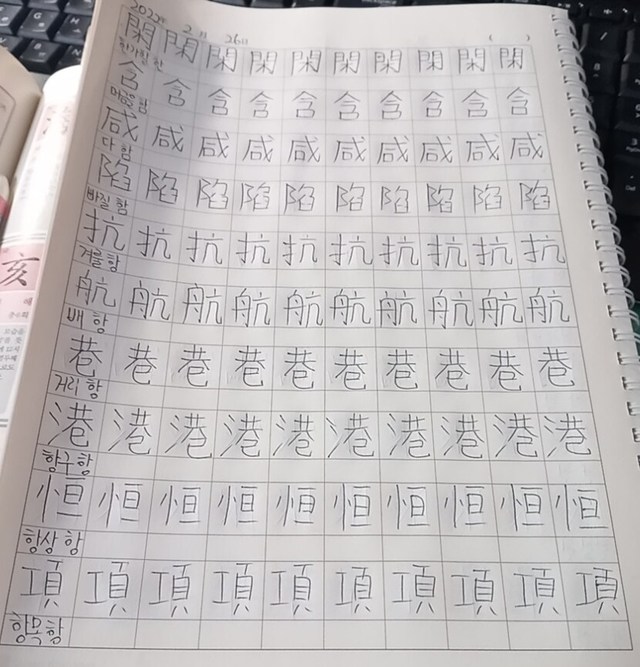 2022년 2월 26일 ( )
閑 閑 閑 閑 閑 閑 閑 閑 閑 閑
한가할 한
含 含 含 含 含 含 含 含 含 含
머금을 함
咸 咸 咸 咸 咸 咸 咸 咸 咸 咸
다 함
陷 陷 陷 陷 陷 陷 陷 陷 陷 陷
빠질 함
抗 抗 抗 抗 抗 抗 抗 抗 抗 抗
겨룰 항
航 航 航 航 航 航 航 航 航 航
배 항
巷 巷 巷 巷 巷 巷 巷 巷 巷 巷
거리 항
港 港 港 港 港 港 港 港 港 港
항구 항
恒 恒 恒 恒 恒 恒 恒 恒 恒 恒
항상 항
項 項 項 項 項 項 項 項 項 項
항목 항
亥